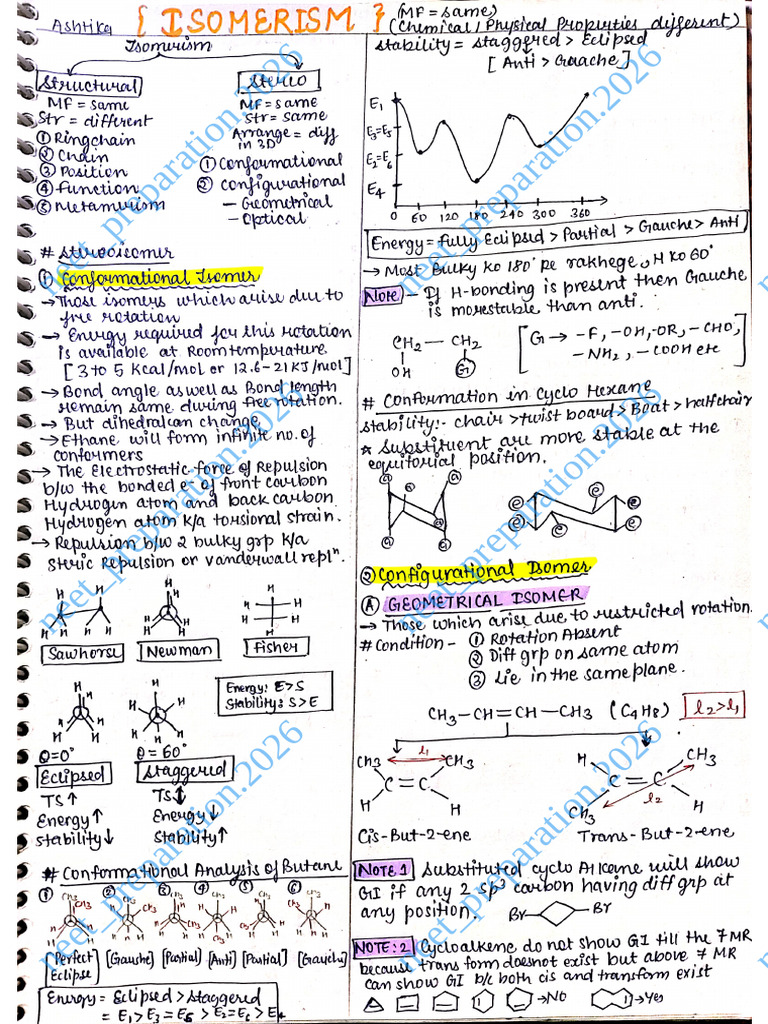 Ashtika { ISOMERISM } (MF = same)
(Chemical / Physical Properties different)
Isomerism
Structural
MF = same
Str = different
① Ringchain
② Chain
③ Position
④ Function
⑤ Metamerism
Stereo
MF = same
Str = same
Arrange = diff
in 3D
① Conformational
② Configurational
— Geometrical
— Optical
# Stereoisomer
① Conformational Isomer
→ Those isomers which arise due to
free rotation
→ Energy required for this rotation
is available at Room temprature.
[3 to 5 Kcal/mol or 12.6-21 KJ/mol]
→ Bond angle as well as Bond length
remain same during free rotation.
→ But dihedral can change
→ Ethane will form infinite no. of
conformers
→ The Electrostatic force of Repulsion
b/w the bonded e⁻s of front carbon
Hydrogen atom and back carbon
Hydrogen atom k/a torsional strain.
→ Repulsion b/w 2 bulky grp k/a
steric Repulsion or vanderwall repl".
H H H H H H
H H H H H H
H H H H H H
Sawhorse Newman Fisher
Energy: E > S
Stability: S > E
H H H H H H
H H H H H H
θ=0° θ = 60°
Eclipsed Staggered
TS↑ TS↓
Energy↑ Energy↓
Stability↓ Stability↑
# Conformational Analysis of Butane
① ② ③ ④ ⑤ ⑥
CH3 CH3 CH3 CH3 CH3 CH3
[Perfect Eclipse] [Gauche] [Partial] [Anti] [Partial] [Gauche]
Energy = Eclipsed > Staggered
= E1 > E3 = E5 > E2 = E6 > E4
Stability = Staggered > Eclipsed
[Anti > Gauche]
E1
E3=E5
E2=E6
E4
0 60 120 180 240 300 360
Energy = Fully Eclipsed > Partial > Gauche > Anti
→ Most Bulky ko 180° pe rakhege, H ko 60°
Note — If H-bonding is present then Gauche
is more stable than anti.
CH2 — CH2
OH G
[G → -F, -OH, -OR, -CHO,
-NH2, -COOH etc]
# Conformation in Cyclo Hexane
Stability:- chair > twist board > Boat > half chair
* Substituent are more stable at the
equitorial position.
a a a
a a a
e e e
e e e
② Configurational Isomer
A GEOMETRICAL ISOMER
→ Those which arise due to restricted rotation.
# Condition - ① Rotation Absent
② Diff grp on same atom
③ Lie in the same plane.
CH3-CH=CH-CH3 (C4H8) l2>l1
CH3 l1 CH3
C=C
H H
Cis-But-2-ene
H CH3
C=C
CH3 l2 H
Trans-But-2-ene
NOTE 1 Substituted cyclo Alkane will show
GI if any 2 sp³ carbon having diff grp at
any position. Br Br
NOTE:2 Cycloalkene do not show GI till the 7 MR
because trans form doesnot exist but above 7 MR
can show GI b/c both cis and transform exist
→NO →Yes
neet_preparation.2026
neet_preparation.2026
neet_preparation.2026
neet_preparation.2026
neet_preparation.2026
neet_preparation.2026